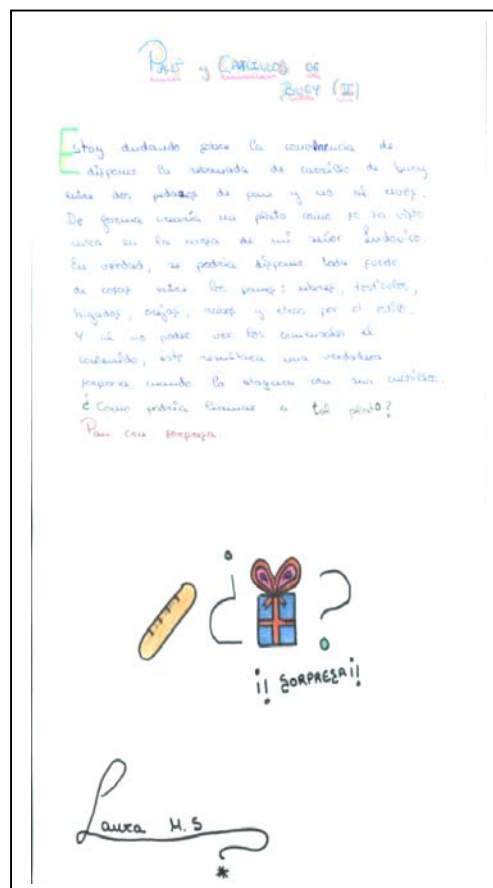 Pan y Carrillos de
Buey (II)
Estoy dudando sobre la conveniencia de
disponer la rebanada de carrillo de buey
entre dos pedazos de pan y no al revés.
De forma crearía un plato como no se ha visto
nunca en la mesa de mi señor Ludovico.
En verdad, se podría disponer toda suerte
de cosas entre los panes: ubres, testículos,
hígados, orejas, rabos y otros por el estilo.
Y al no poder ver los comensales el
contenido, este resultaría una verdadera
sorpresa cuando lo ataquen con sus cuchillos.
¿Como podría llamar a tal plato?
Pan con sorpresa.
¿ ?
¡¡ SORPRESA!!
Laura M. S
*